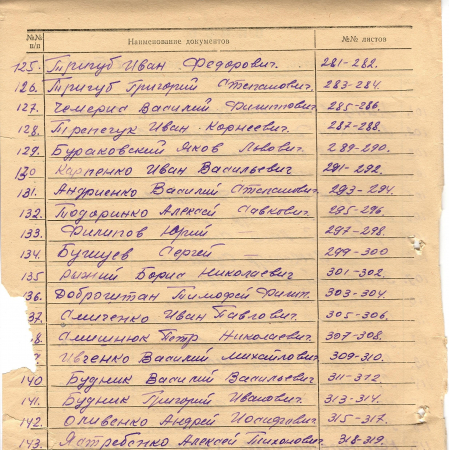 №№ п/п Наименование документов №№ листов
125. Тригуб Иван Федорович. 281-282.
126. Тригуб Григорий Степанович. 283-284.
127. Чемерис Василий Филиппович 285-286.
128. Трепегук Иван Корнеевич. 287-288.
129. Бураковский Яков Львович. 289-290.
130 Карпенко Иван Васильевич 291-292.
131. Андриенко Василий Степанович. 293-294.
132. Подаринко Алексей Савкович. 295-296.
133. Филипов Юрий 297-298.
134. Бугищев Сергей — 299-300
135 Рыжий Борис Николаевич 301-302.
136. Доброштан Тимофей Филип. 303-304.
137. Смиченко Иван Павлович. 305-306.
8. Смишнюк Петр Николаевич. 307-308.
9. Ивченко Василий Михайлович. 309-310.
140 Будник Василий Васильевич 311-312.
141. Будник Григорий Иванович. 313-314.
142. Оливенко Андрей Иосифович 315-317.
143. Ястребенко Алексей Тихонович. 318-319.